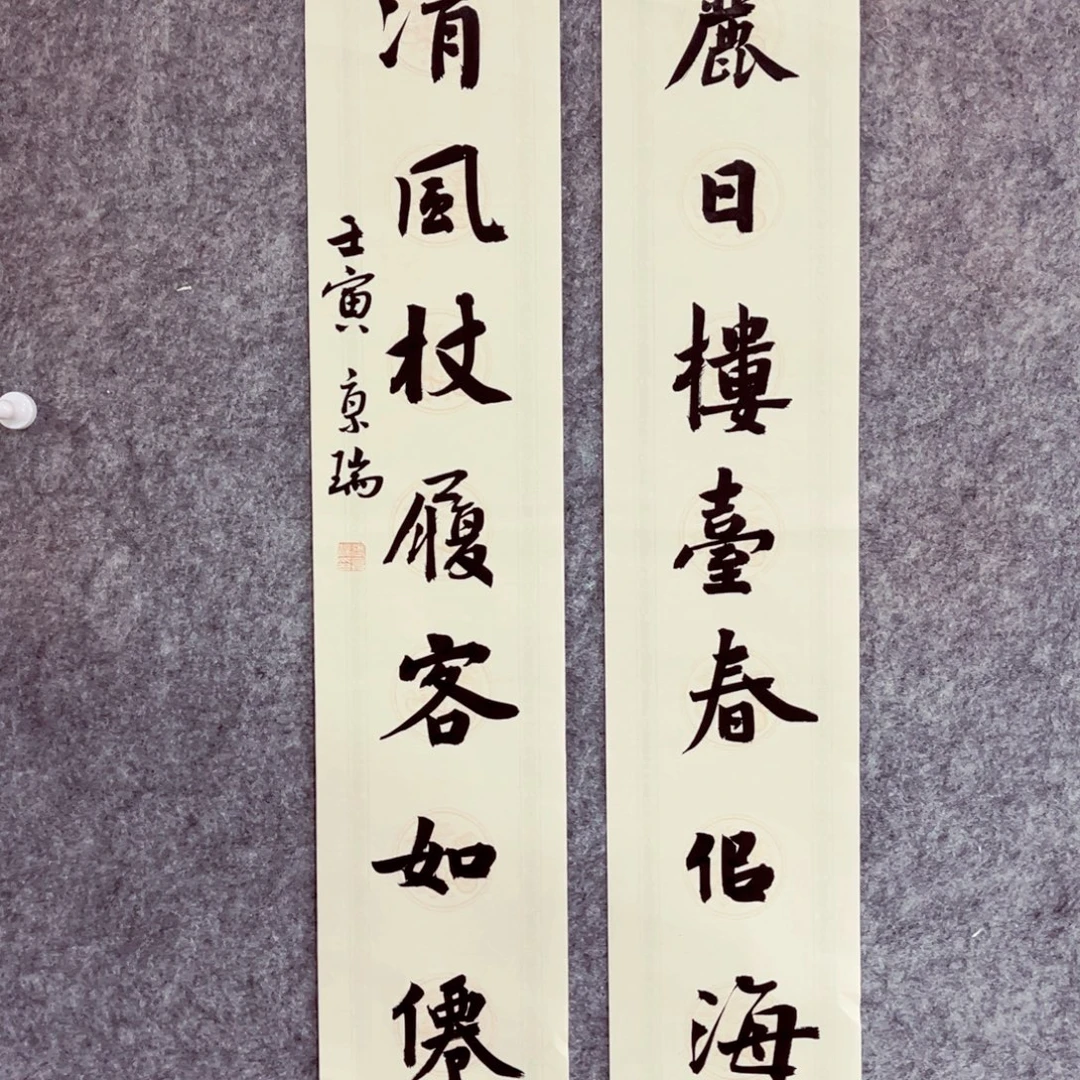 麗日樓臺春佀海
清風杖履客如僊
壬寅 京瑞